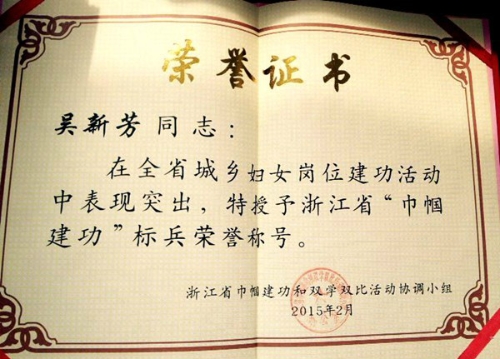 荣誉证书
吴新芳 同志：
在全省城乡妇女岗位建功活动
中表现突出，特授予浙江省“巾帼
建功”标兵荣誉称号。
浙江省巾帼建功和双学双比活动协调小组
2015年2月